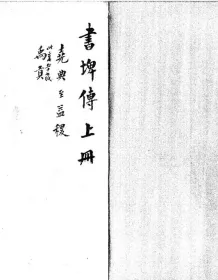 書埤傳上冊
堯典至益稷
禹貢